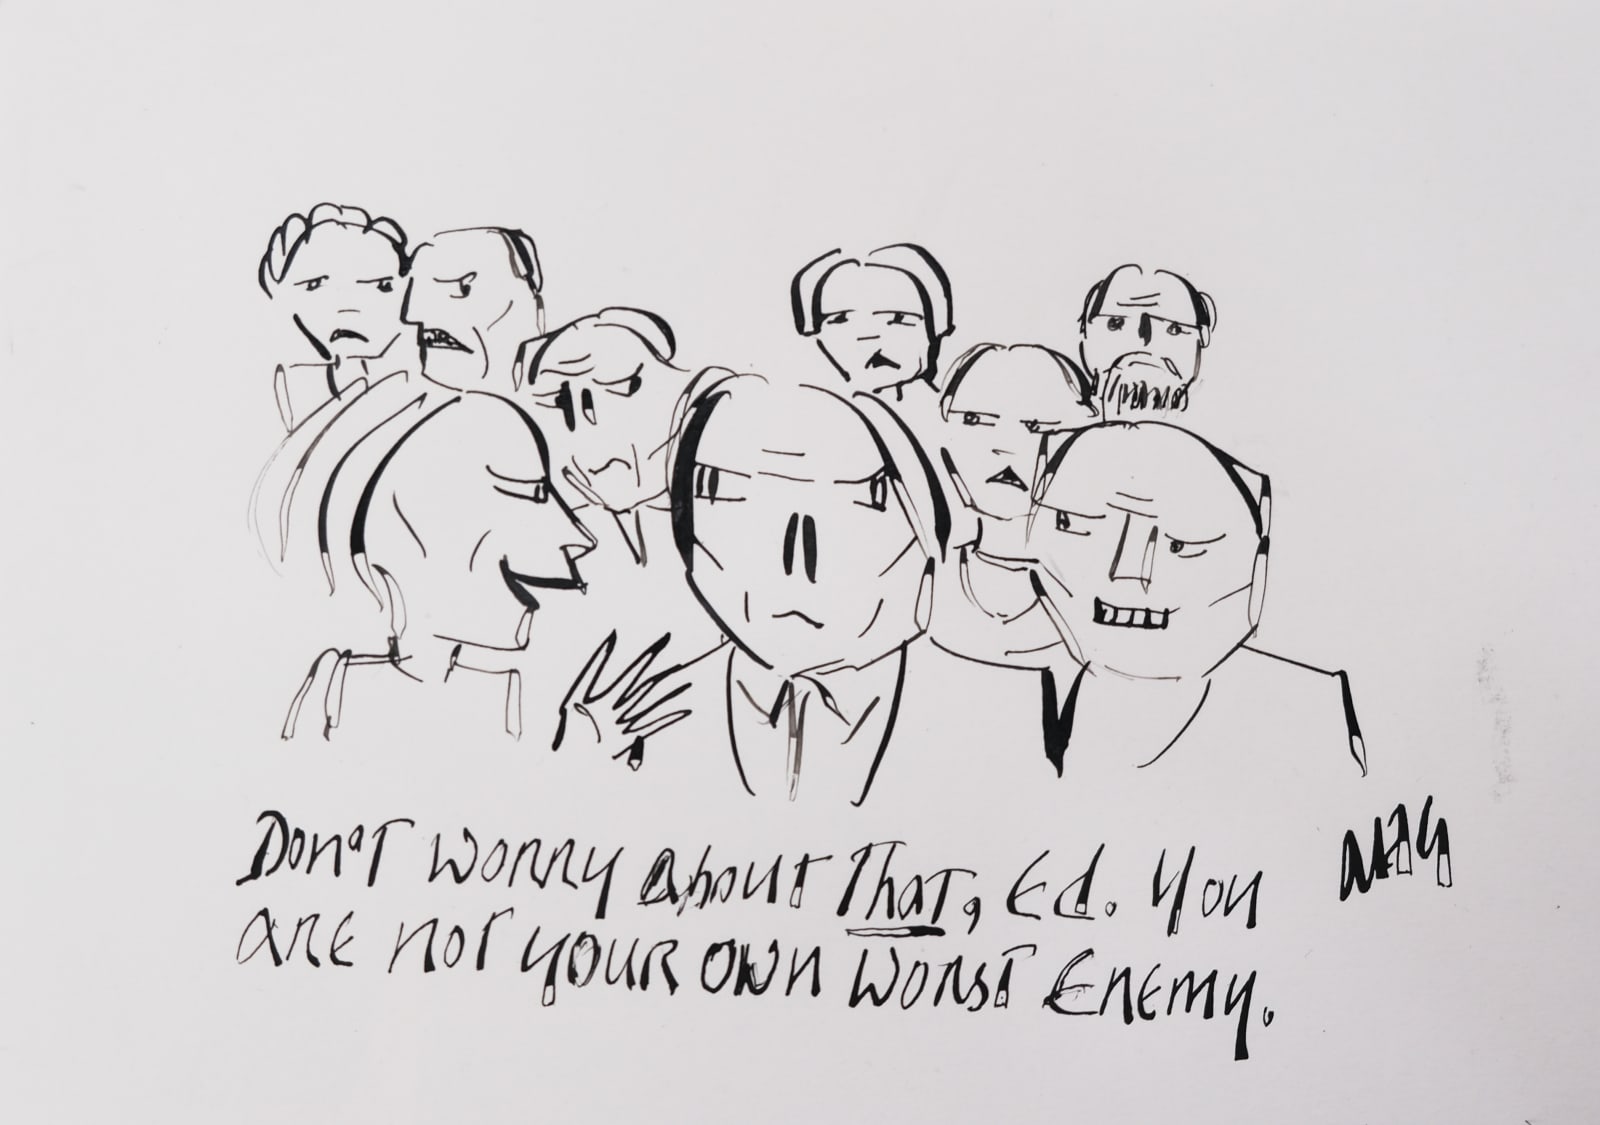 Don't worry about That, Ed. You
are not your own worst Enemy.